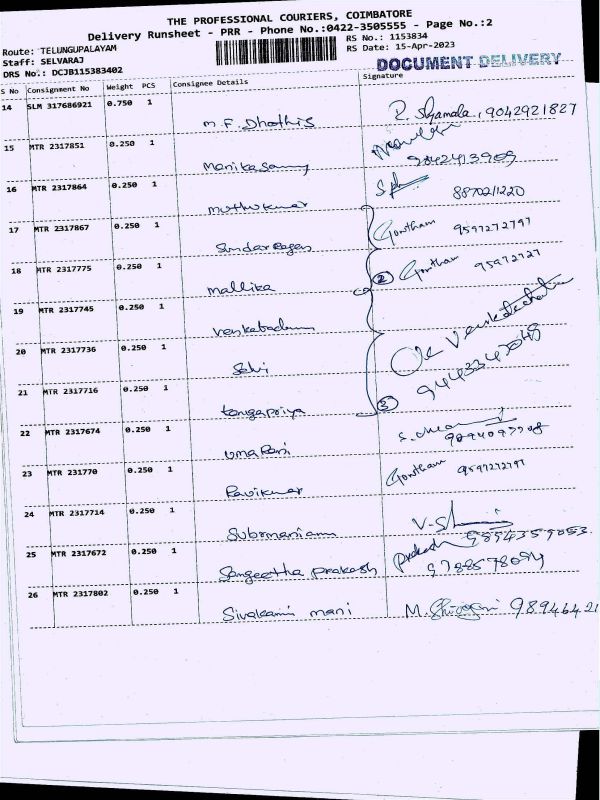 THE PROFESSIONAL COURIERS, COIMBATORE
Delivery Runsheet - PRR - Phone No.:0422-3505555 - Page No.:2
Route: TELUNGUPALAYAM
Staff: SELVARAJ
DRS No.: DCJB115383402
RS No.: 1153834
RS Date: 15-Apr-2023
DOCUMENT DELIVERY
S No Consignment No Weight PCS Consignee Details Signature
14 SLM 317686921 0.750 1 M.F. Dhothis R. Shyamala, 9042921827
15 MTR 2317851 0.250 1 Manikasamy 9842413909
16 MTR 2317864 0.250 1 muthukumar 8870211220
17 MTR 2317867 0.250 1 Sundar Gowtham 9597272797
18 MTR 2317775 0.250 1 mallika 2 Gowtham 95972727
19 MTR 2317745 0.250 1 Venkatachalam
20 MTR 2317736 0.250 1 Selvi
21 MTR 2317716 0.250 1 tangapriya 3
22 MTR 2317674 0.250 1 uma Rani
23 MTR 231770 0.250 1 Ravikumar Gowtham 9597272797
24 MTR 2317714 0.250 1 Subramaniam
25 MTR 2317672 0.250 1 Sangeetha prakash Prakash
26 MTR 2317802 0.250 1 Sivakami mani M. 98946421